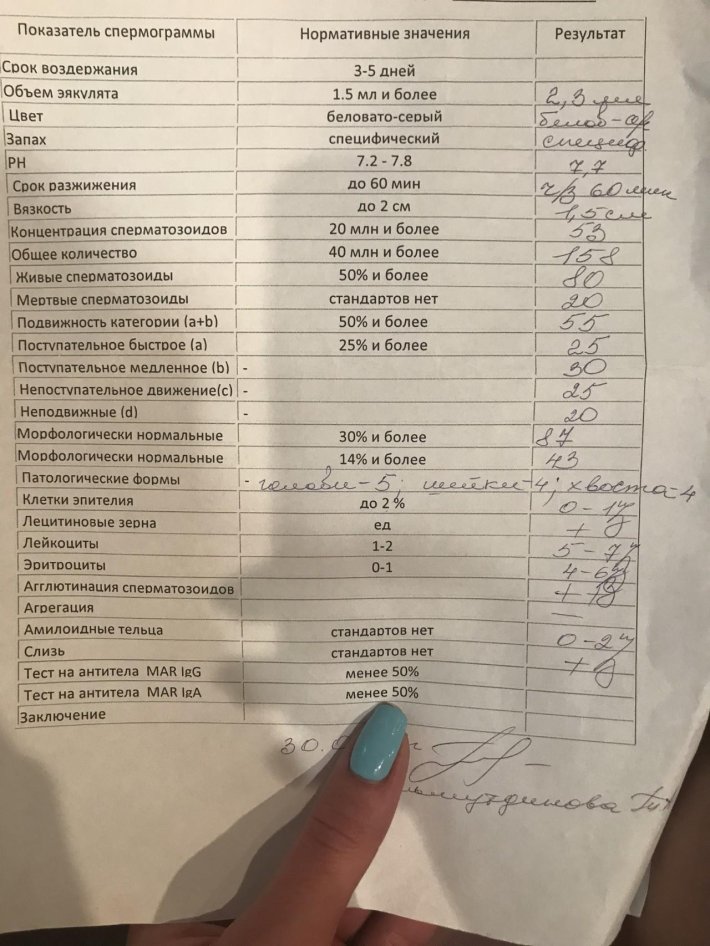 Показатель спермограммы Нормативные значения Результат
Срок воздержания 3-5 дней
Объем эякулята 1.5 мл и более 2,3 мл
Цвет беловато-серый белов-сер
Запах специфический специф.
PH 7.2 - 7.8 7,7
Срок разжижения до 60 мин ч/з 60 мин
Вязкость до 2 см 1,5 см
Концентрация сперматозоидов 20 млн и более 53
Общее количество 40 млн и более 158
Живые сперматозоиды 50% и более 80
Мертвые сперматозоиды стандартов нет 20
Подвижность категории (a+b) 50% и более 55
Поступательное быстрое (a) 25% и более 25
Поступательное медленное (b) - 30
Непоступательное движение(c) - 25
Неподвижные (d) - 20
Морфологически нормальные 30% и более 87
Морфологически нормальные 14% и более 43
Патологические формы - головы-5; шейки-4; хвоста-4
Клетки эпителия до 2 % 0-1
Лецитиновые зерна ед +
Лейкоциты 1-2 5-7
Эритроциты 0-1 4-6
Агглютинация сперматозоидов +
Агрегация —
Амилоидные тельца стандартов нет 0-2
Слизь стандартов нет +
Тест на антитела MAR IgG менее 50%
Тест на антитела MAR IgA менее 50%
Заключение
30.